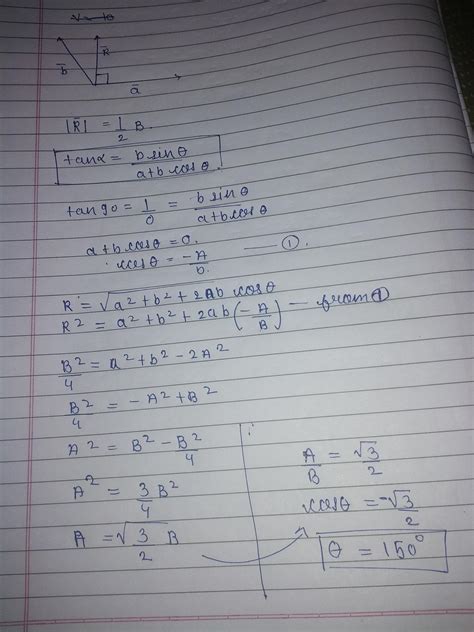 R̄
b̄
ā
|R̄| = 1/2 B.
tanα = b sinθ / a+b cosθ
tan 90 = 1/0 = b sinθ / a+b cosθ
a+b cosθ = 0. — ①.
∴ cosθ = -A/b.
R = √a²+b²+2Ab cosθ
R² = a²+b²+2ab(-A/B) — from ①
B²/4 = a²+b²-2A²
B²/4 = -A²+B²
A² = B²-B²/4
A² = 3/4 B²
A = √3/2 B
A/B = √3/2
cosθ = -√3/2
θ = 150°